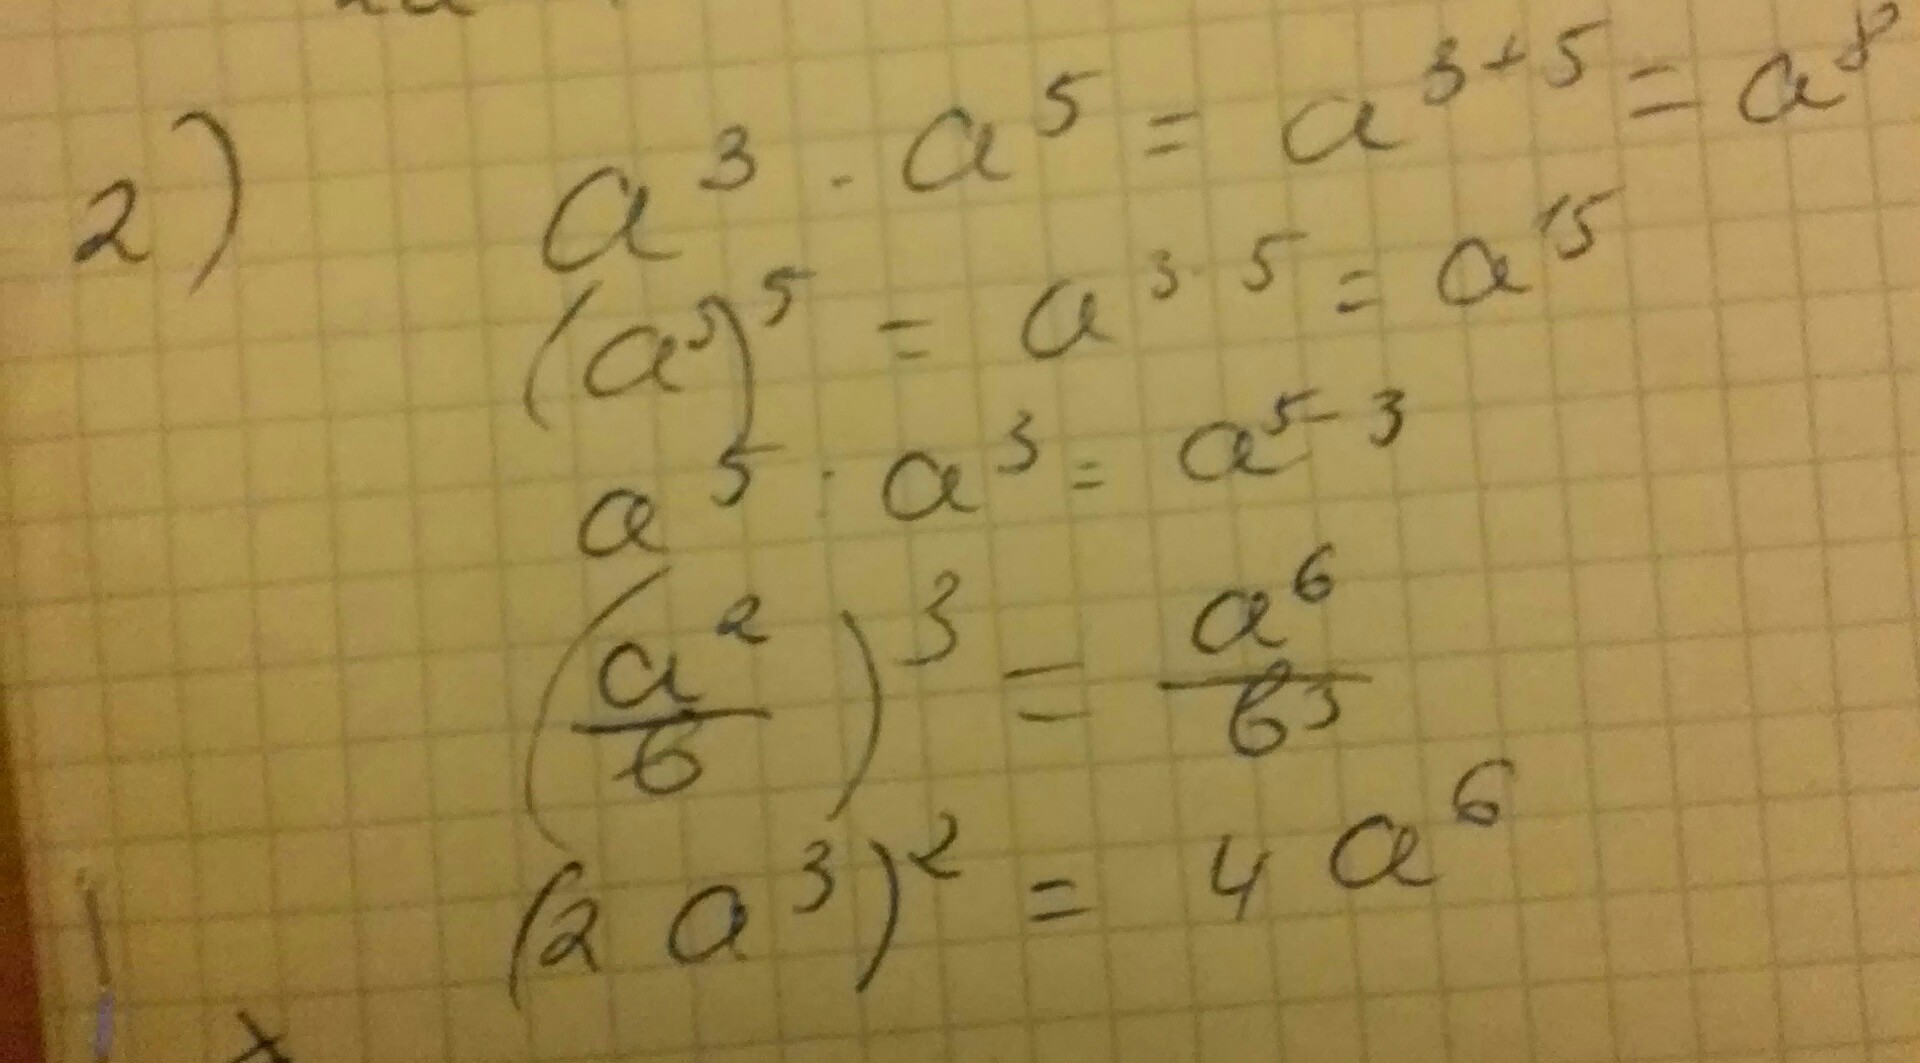 2) a³ · a⁵ = a³⁺⁵ = a⁸
(a³)⁵ = a³·⁵ = a¹⁵
a⁵ : a³ = a⁵⁻³
(a²/в)³ = a⁶/в³
(2a³)² = 4a⁶